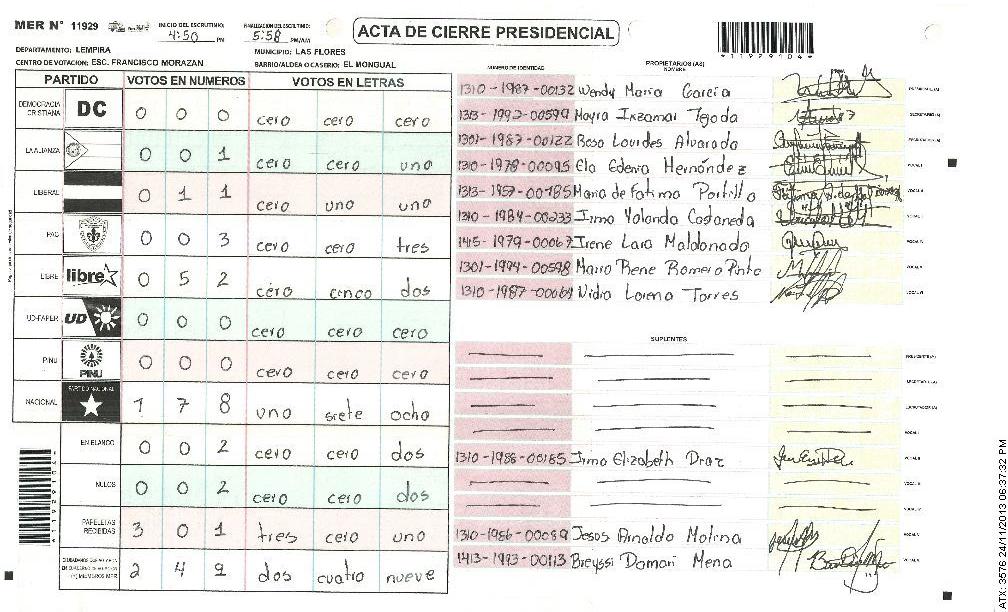 MER N° 11929
INICIO DEL ESCRUTINIO: 4:50 PM
FINALIZACION DEL ESCRUTINIO: 5:58 PM/AM
ACTA DE CIERRE PRESIDENCIAL
*11929104*
DEPARTAMENTO: LEMPIRA
MUNICIPIO: LAS FLORES
CENTRO DE VOTACION: ESC. FRANCISCO MORAZAN
BARRIO/ALDEA O CASERIO: EL MONGUAL
PARTIDO VOTOS EN NUMEROS VOTOS EN LETRAS
DEMOCRACIA CRISTIANA DC 0 0 0 cero cero cero
LA ALIANZA 0 0 1 cero cero uno
LIBERAL 0 1 1 cero uno uno
PAC 0 0 3 cero cero tres
LIBRE libre 0 5 2 cero cinco dos
UD-FAPER UD 0 0 0 cero cero cero
PINU PINU 0 0 0 cero cero cero
NACIONAL PARTIDO NACIONAL 1 7 8 uno siete ocho
EN BLANCO 0 0 2 cero cero dos
NULOS 0 0 2 cero cero dos
PAPELETAS RECIBIDAS 3 0 1 tres cero uno
2 4 9 dos cuatro nueve
*11929104*
NUMERO DE IDENTIDAD
PROPIETARIOS (AS)
NOMBRE
1310-1987-00132 Wendy Maria Garcia PRESIDENTE (A)
1313-1992-00599 Mayra Inzamar Tejada SECRETARIO (A)
1301-1987-00122 Rosa Lourdes Alvarado ESCRUTADOR (A)
1310-1978-00095 Ela Edenia Hernández VOCAL I
1313-1957-00185 Maria de Fatima Portillo VOCAL II
1310-1984-00233 Irma Yolanda Castaneda
1415-1979-00067 Irene Lara Maldonado VOCAL IV
1301-1994-00598 Mario Rene Romero Pinto VOCAL V
1310-1987-00064 Nidia Lorena Torres VOCAL VI
SUPLENTES
PRESIDENTE (A)
SECRETARIO (A)
ESCRUTADOR (A)
VOCAL I
1310-1986-00185 Irma Elizabeth Diaz VOCAL II
VOCAL III
VOCAL IV
1310-1986-00089 Jesus Arnaldo Molina VOCAL V
1413-1993-00113 Breyssi Damari Mena VOCAL VI
ATX: 3576 24/11/2013 06:37:32 PM